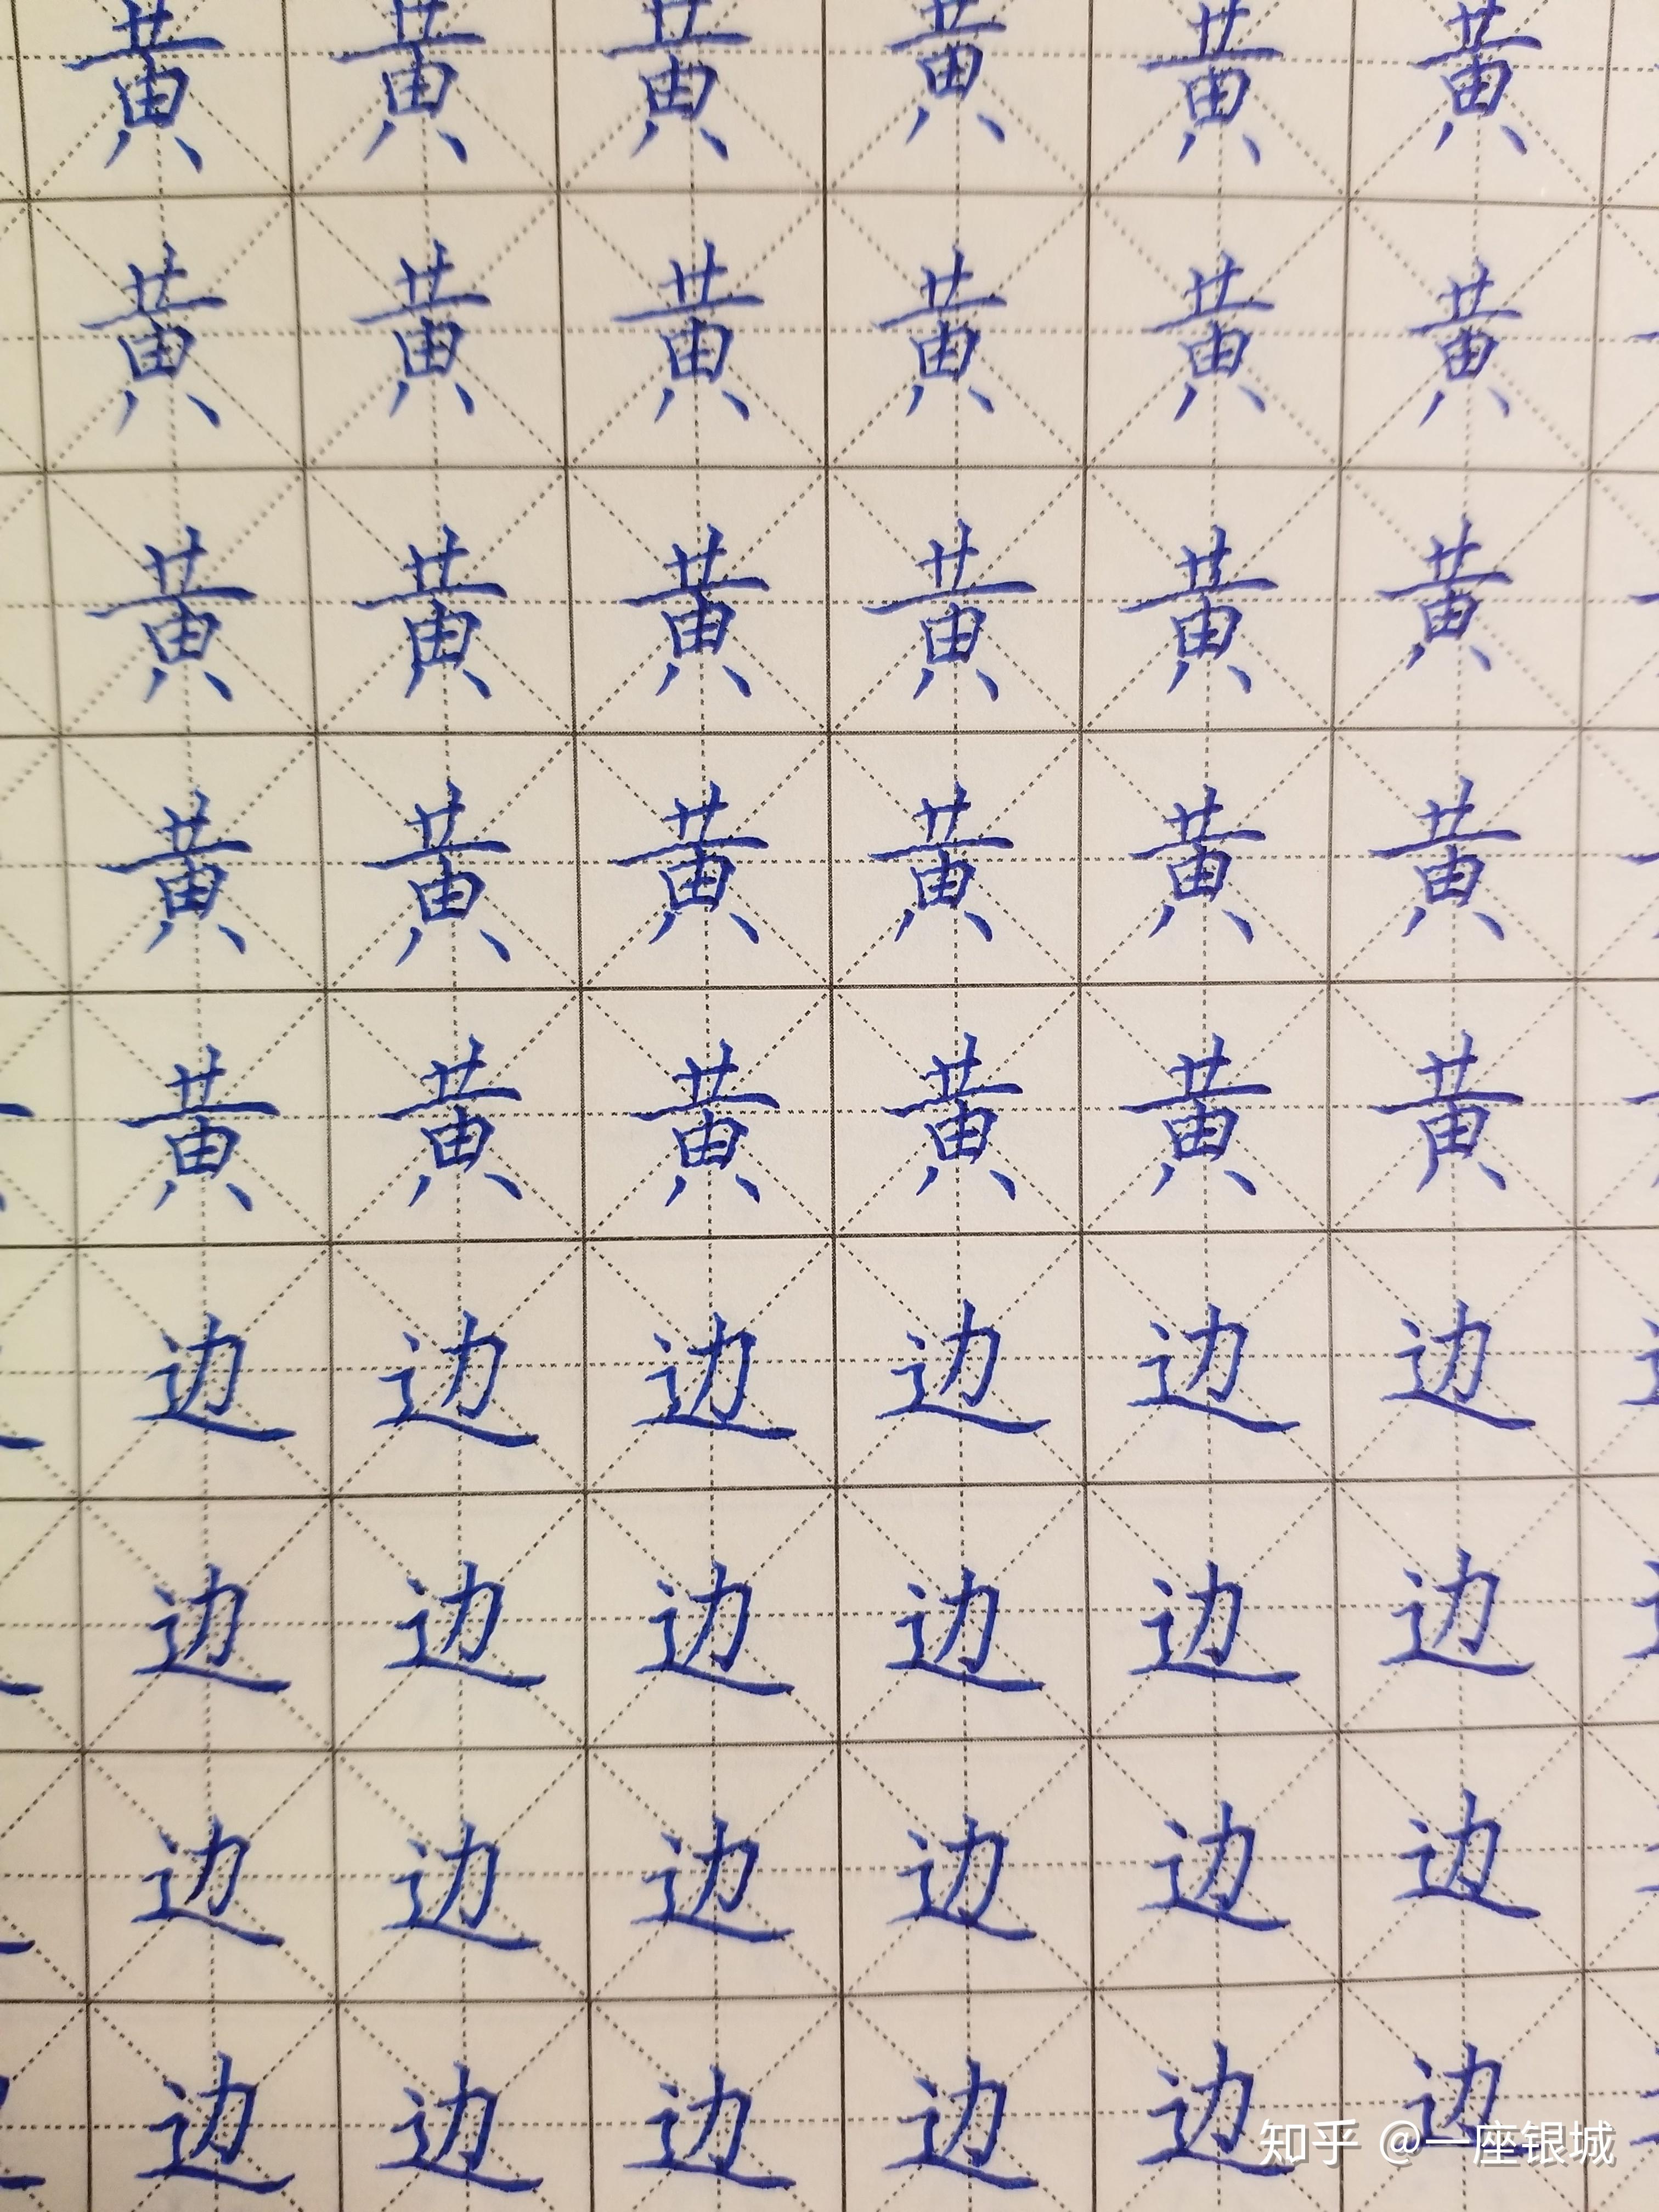 黄 黄 黄 黄 黄 黄
黄 黄 黄 黄 黄 黄
黄 黄 黄 黄 黄 黄
黄 黄 黄 黄 黄 黄
黄 黄 黄 黄 黄 黄
边 边 边 边 边 边
边 边 边 边 边 边
边 边 边 边 边 边
边 边 边 边 边 边
知乎 @一座银城